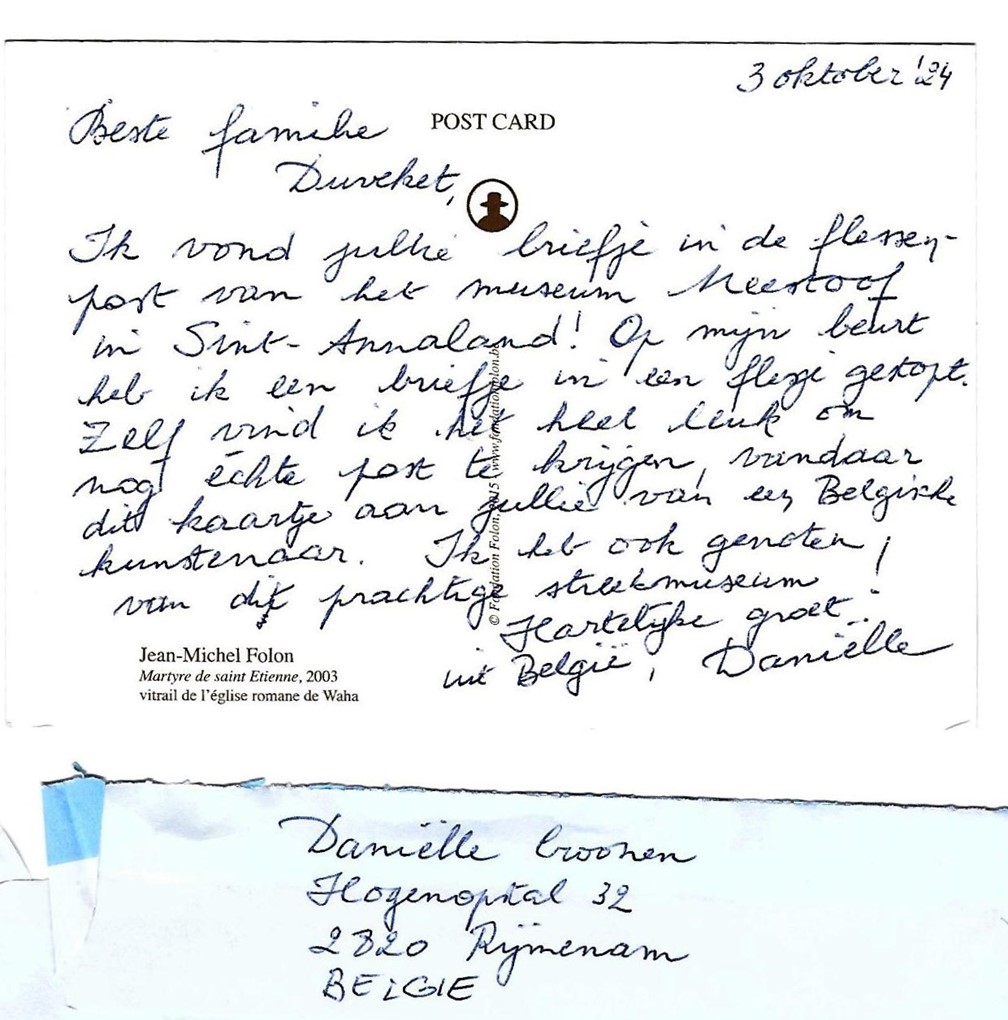 3 oktober '24
Beste familie
POST CARD
Duveket,
Ik vond jullie briefje in de flessen-
post van het museum Meestoof
in Sint-Annaland! Op mijn beurt
heb ik een briefje in een flesje gestopt.
Zelf vind ik het heel leuk om
nog échte post te krijgen, vandaar
dit kaartje aan jullie van een Belgische
kunstenaar. Ik heb ook genoten
van dit prachtige streekmuseum!
Hartelijke groet
uit België, Daniëlle
© Fondation Folon, 2015 www.fondationfolon.be
Jean-Michel Folon
Martyre de saint Etienne, 2003
vitrail de l'église romane de Waha
Daniëlle Croonen
Hogenopstal 32
2820 Rijmenam
BELGIE